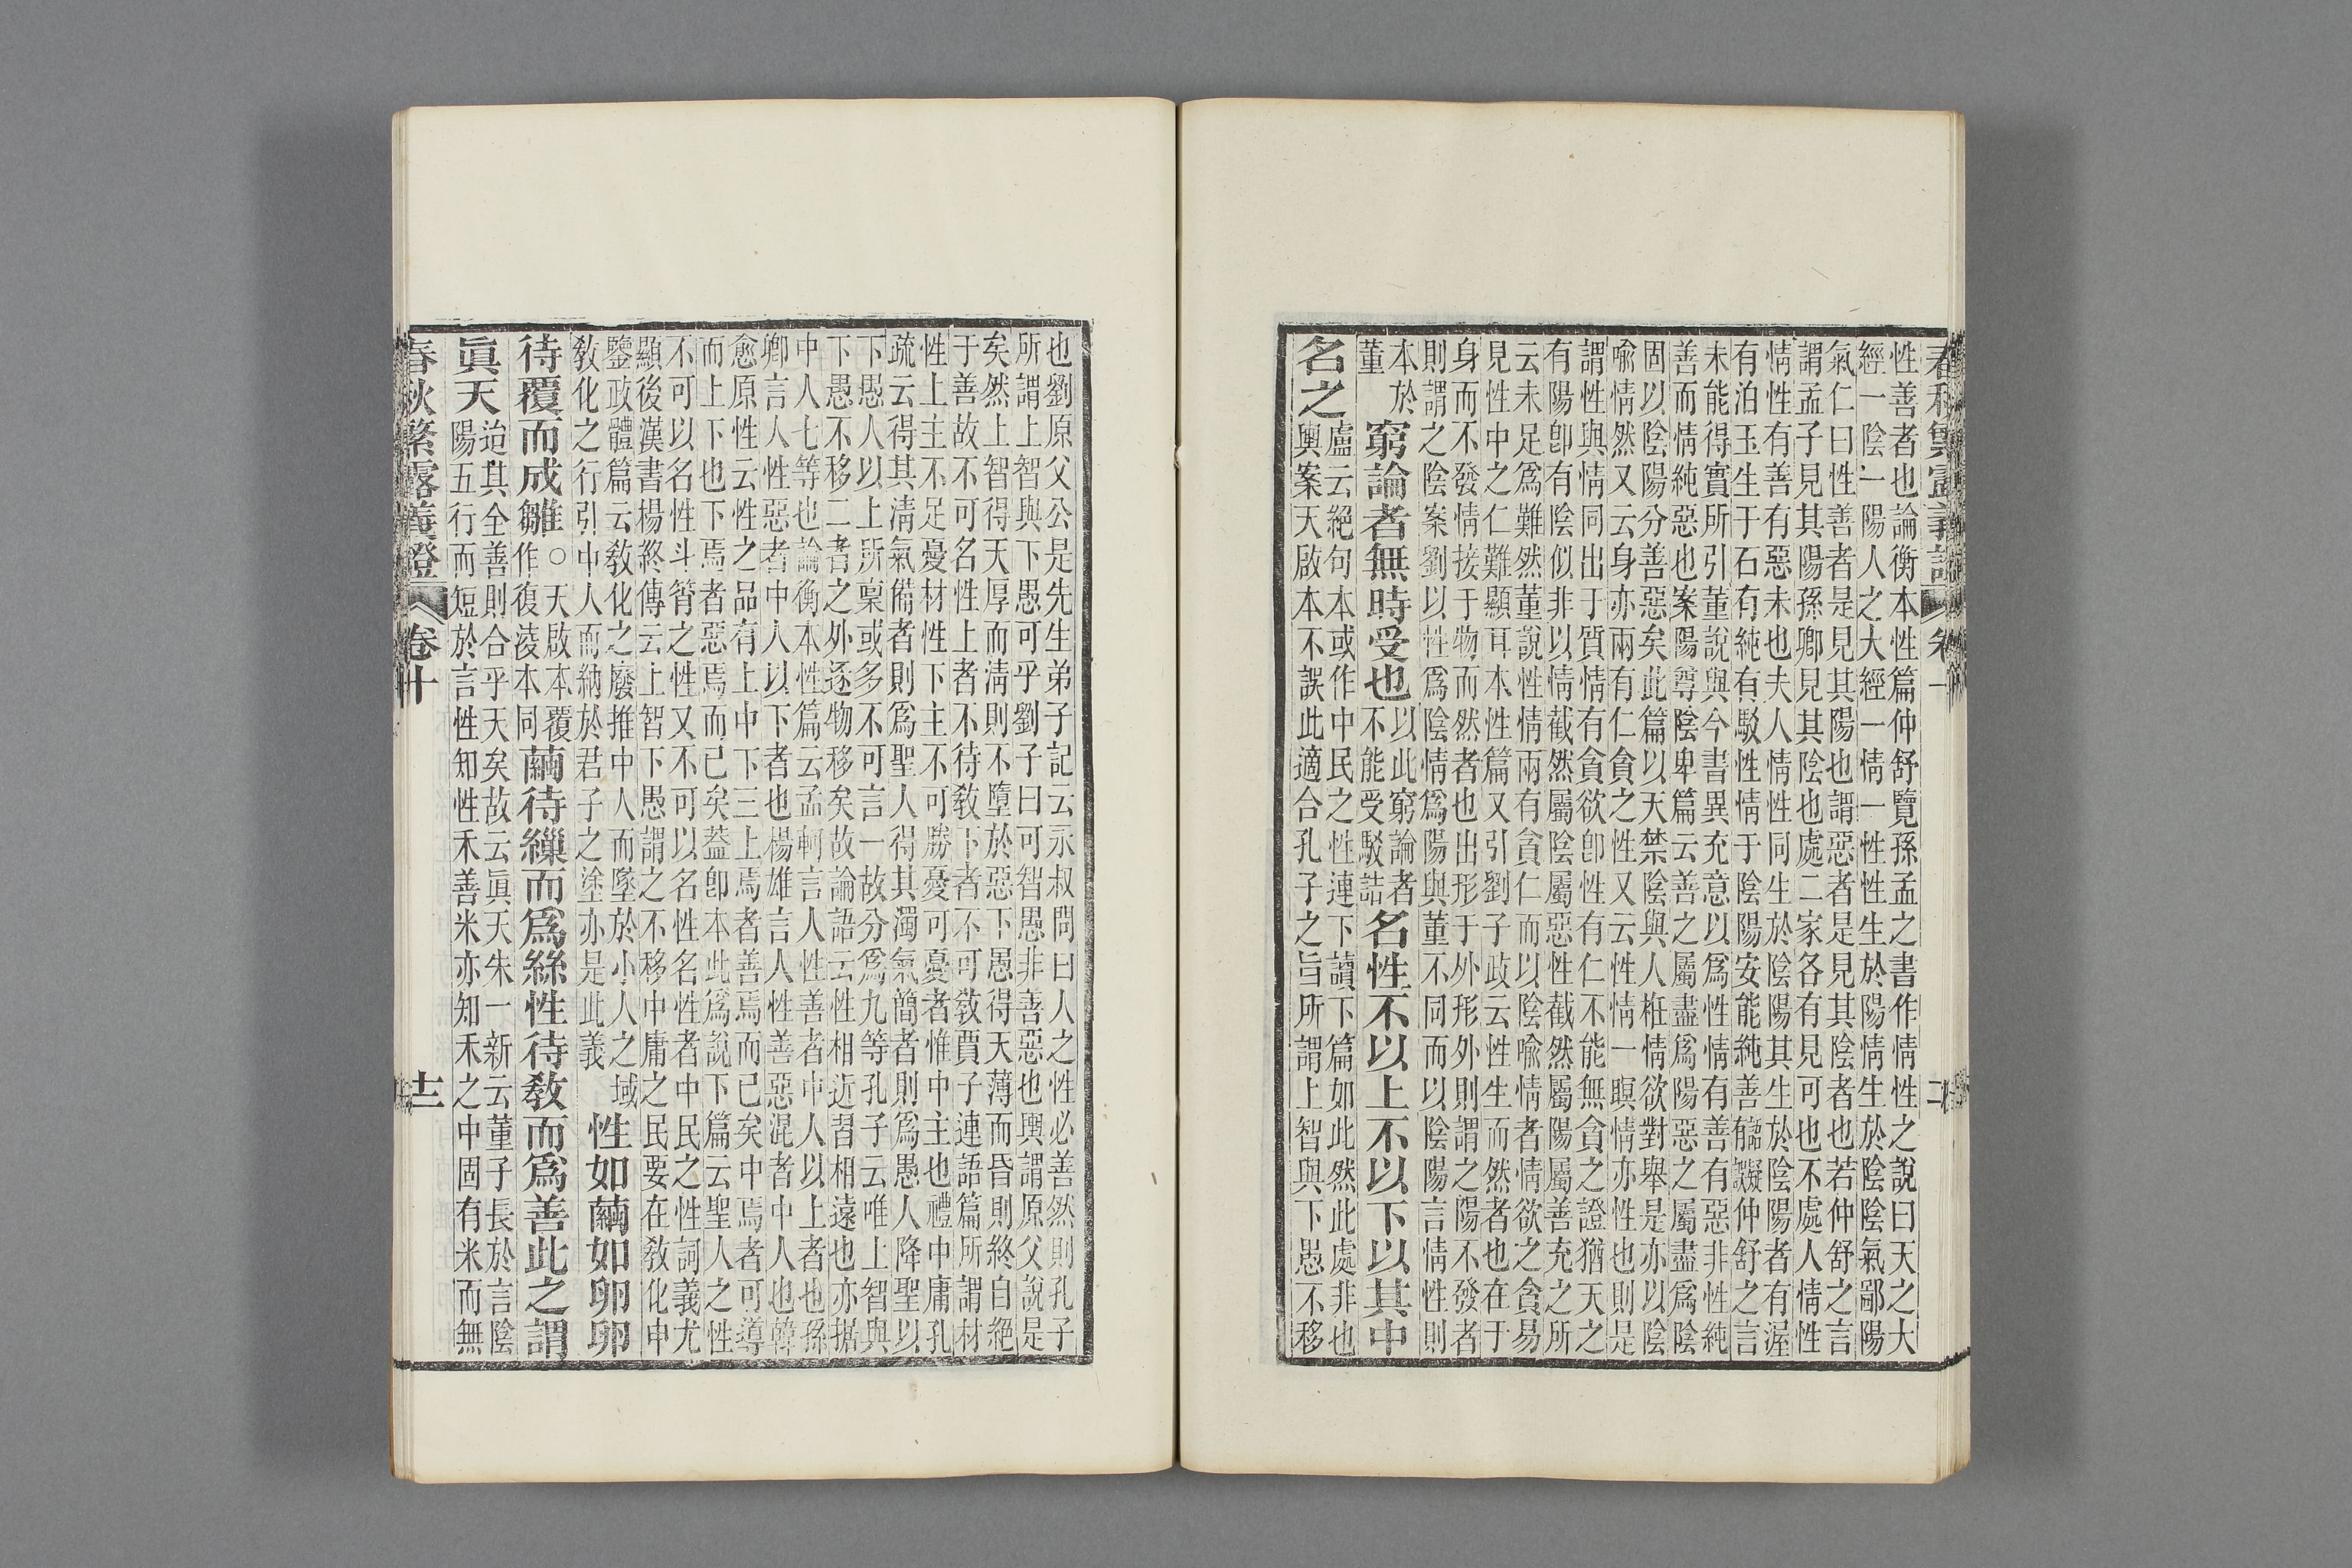 春秋繁露義證
卷十
性善者也論衡本性篇仲舒覽孫孟之書作情性之說曰天之大
經一陰一陽人之大經一情一性性生於陽情生於陰陰氣鄙陽
氣仁曰性善者是見其陽也謂惡者是見其陰者也若仲舒之言
謂孟子見其陽孫卿見其陰也處二家各有見可也不處人情性
情性有善有惡未也夫人情性同生於陰陽其生於陰陽者有渥
有泊玉生于石有純有駁性情于陰陽安能純善仲舒之言
未能得實所引董說與今書異充意以爲性情有善有惡非性純
善而情純惡也案陽尊陰卑篇云善之屬盡爲陽惡之屬盡爲陰
固以陰陽分善惡矣此篇以天禁陰與人栣情欲對舉是亦以陰
喻情然又云身亦兩有仁貪之性又云性情一瞑情亦性也則是
謂性與情同出于質情有貪欲卽性有仁不能無貪之證猶天之
有陽卽有陰似非以情截然屬陰屬惡性截然屬陽屬善充之所
云未足爲難然董說性情兩有貪仁而以陰喻情者情欲之貪易
見性中之仁難顯耳本性篇又引劉子政云性生而然者也在于
身而不發情接于物而然者也出形于外形外則謂之陽不發者
則謂之陰案劉以性爲陰情爲陽與董不同而以陰陽言情性則
本於
董
窮論者無時受也
以此窮論者
不能受駁詰
名性不以上不以下以其中
名之
盧云絕句本或作中民之性連下讀下篇如此然此處非也
輿案天啟本不誤此適合孔子之旨所謂上智與下愚不移
也劉原父公是先生弟子記云永叔問曰人之性必善然則孔子
所謂上智與下愚可乎劉子曰可智愚非善惡也輿謂原父說是
矣然上智得天厚而淸則不墮於惡下愚得天薄而昏則終自絕
于善故不可名性上者不待敎下者不可敎賈子連語篇所謂材
性上主不足憂材性下主不可勝憂可憂者惟中主也禮中庸孔
疏云得其淸氣備者則爲聖人得其濁氣簡者則爲愚人降聖以
下愚人以上所稟或多不可言一故分爲九等孔子云唯上智與
下愚不移二者之外逐物移矣故論語云性相近習相遠也亦据
中人七等也論衡本性篇云孟軻言人性善者中人以上者也孫
卿言人性惡者中人以下者也楊雄言人性善惡混者中人也韓
愈原性云性之品有上中下三上焉者善焉而已矣中焉者可導
而上下也下焉者惡焉而已矣蓋卽本此爲說下篇云聖人之性
不可以名性斗筲之性又不可以名性名性者中民之性詞義尤
顯後漢書楊終傳云上智下愚謂之不移中庸之民要在敎化申
鑒政體篇云敎化之廢推中人而墜於小人之域
敎化之行引中人而納於君子之塗亦是此義
性如繭如卵卵
待覆而成雛
○天啟本覆
作復淩本同
繭待繅而爲絲性待敎而爲善此之謂
眞天
迨其全善則合乎天矣故云眞天朱一新云董子長於言陰
陽五行而短於言性知性禾善米亦知禾之中固有米而無
春秋繁露義證
卷十
十二